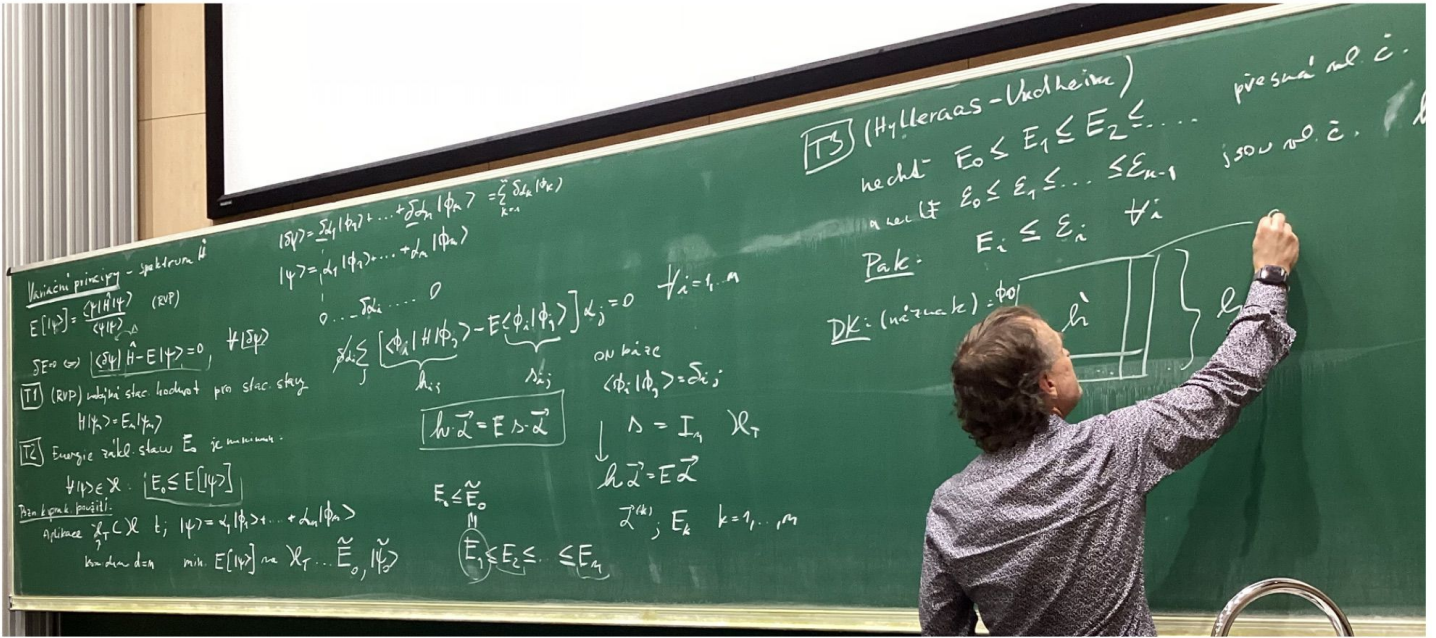 Variační principy - spektrum Ĥ
E[|ψ>] = <ψ|Ĥ|ψ> / <ψ|ψ> (RVP)
δE=0 <=> <δψ|Ĥ-E|ψ>=0, ∀|δψ>
T1 (RVP) nabývá stac. hodnot pro stac. stavy
H|ψn>=En|ψn>
T2 Energie zákl. stavu E₀ je minimum.
∀|ψ>∈ℋ: E₀≤E[|ψ>]
Pozn. k prak. použití:
Aplikace ℋ_T⊂ℋ t; |ψ>=α₁|ϕ₁>+...+αₙ|ϕₙ>
dim d=n min. E[|ψ>] na ℋ_T ... Ẽ₀, |ψ̃₀>
|δψ>=δα₁|ϕ₁>+...+δαₙ|ϕₙ> = Σ_{k=1}^{n} δα_k|ϕ_k>
|ψ>=α₁|ϕ₁>+...+αₙ|ϕₙ>
0...δαᵢ....0
δαᵢ Σ_j [<ϕᵢ|H|ϕⱼ>-E<ϕᵢ|ϕⱼ>]αⱼ=0 ∀i=1,..n
hᵢⱼ sᵢⱼ
h·α⃗=E s·α⃗
ON báze
<ϕᵢ|ϕⱼ>=δᵢⱼ
s = Iₙ ℋ_T
hα⃗=Eα⃗
α⃗⁽ᵏ⁾; E_k k=1,...,n
E₀≤Ẽ₀
E₁≤E₂≤...≤Eₙ
T3 (Hylleraas-Undheim)
nechť E₀≤E₁≤E₂≤.... přesná vl. č.
a nechť ε₀≤ε₁≤...≤εₙ₋₁ jsou vl. č.
Pak: Eᵢ≤εᵢ ∀i
DK: (náznak)
h